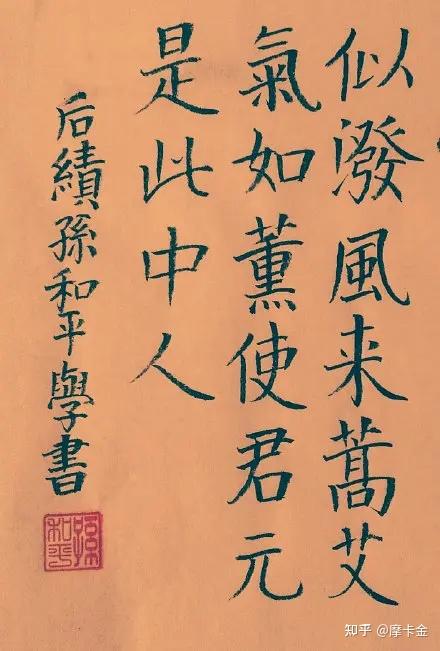 似潑風来蒿艾
氣如薰使君元
是此中人
后績孫和平學書
孫和平
知乎 @摩卡金